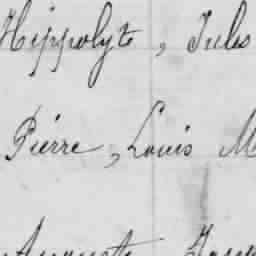 Hippolyte, Jules
Pierre, Louis M
Auguste